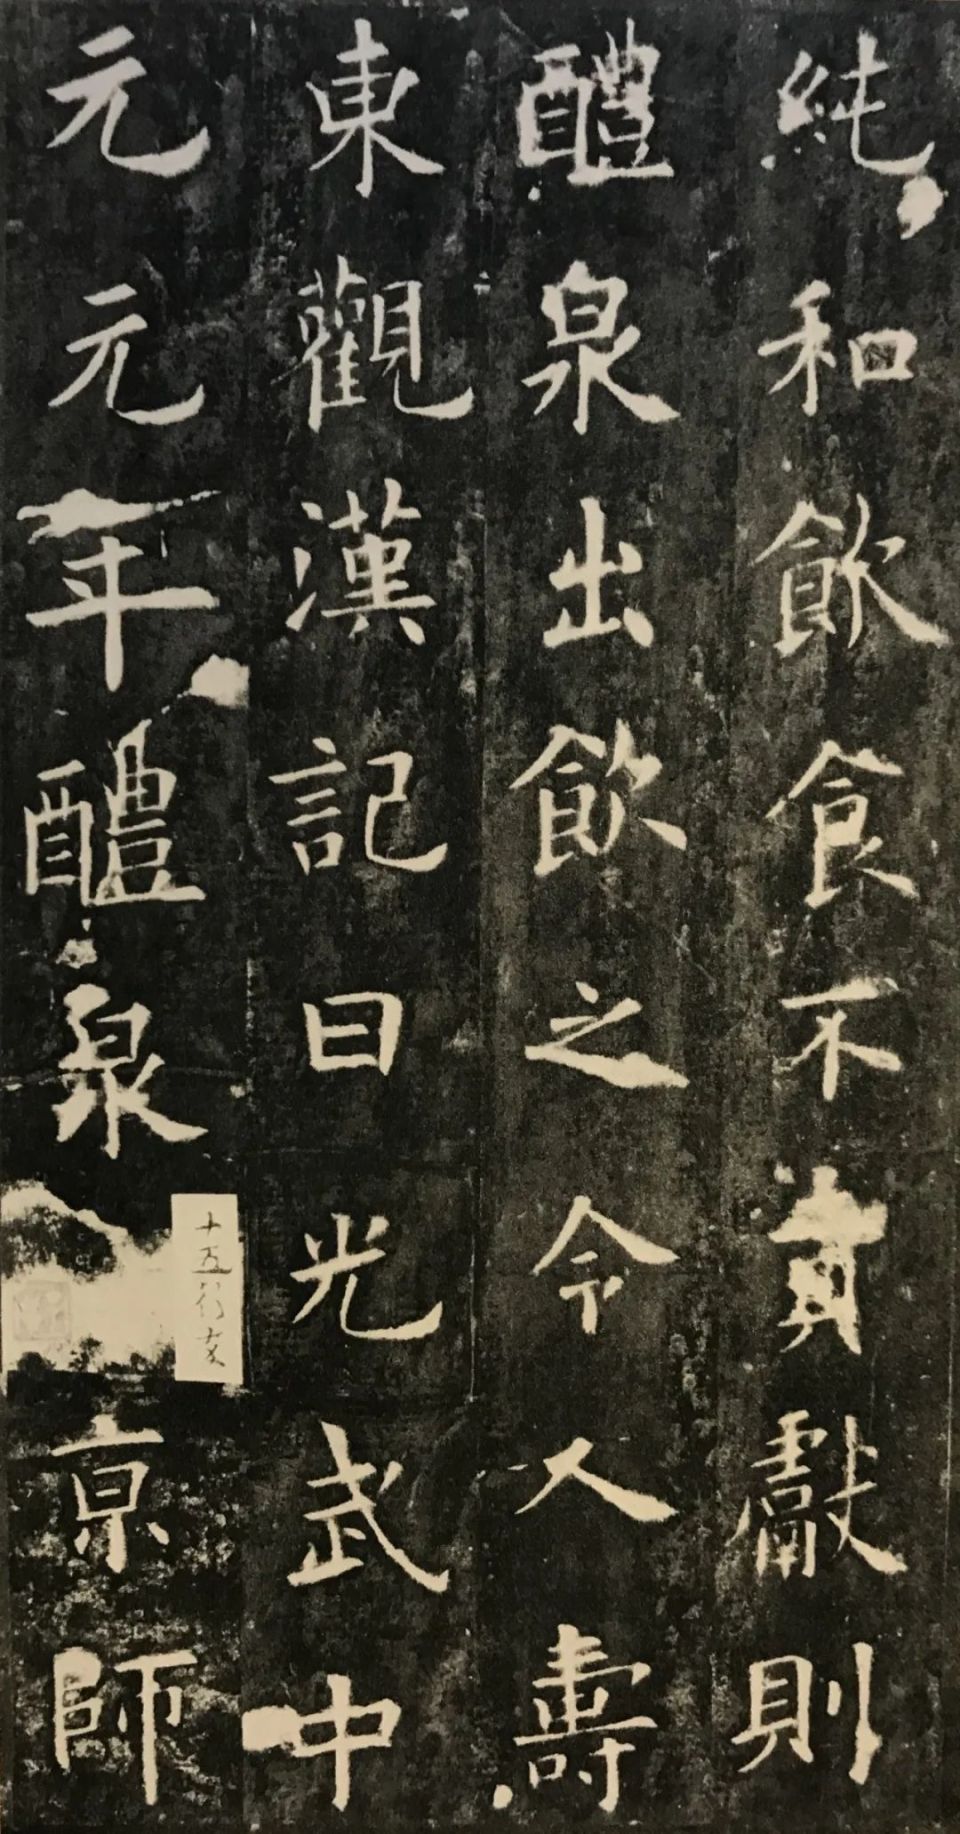 純和飲食不貢獻則
醴泉出飲之令人壽
東觀漢記曰光武中
元元年醴泉
京師